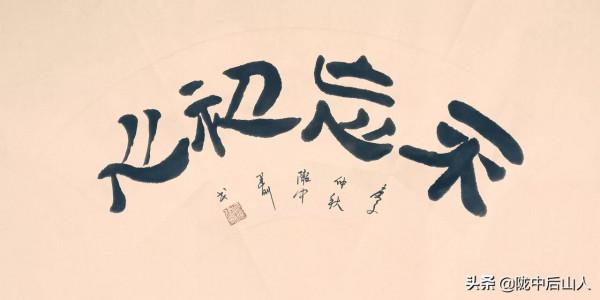 不忘初心
仲秋
陇中
头条 @陇中后山人